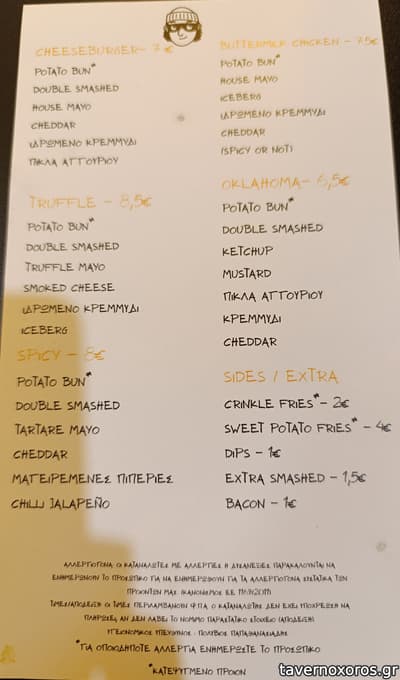 CHEESEBURGER - 7€
POTATO BUN*
DOUBLE SMASHED
HOUSE MAYO
CHEDDAR
ΙΔΡΩΜΕΝΟ ΚΡΕΜΜΥΔΙ
ΠΙΚΛΑ ΑΓΓΟΥΡΙΟΥ
TRUFFLE - 8,5€
POTATO BUN*
DOUBLE SMASHED
TRUFFLE MAYO
SMOKED CHEESE
ΙΔΡΩΜΕΝΟ ΚΡΕΜΜΥΔΙ
ICEBERG
SPICY - 8€
POTATO BUN*
DOUBLE SMASHED
TARTARE MAYO
CHEDDAR
ΜΑΓΕΙΡΕΜΕΝΕΣ ΠΙΠΕΡΙΕΣ
CHILLI JALAPEÑO
BUTTERMILK CHICKEN - 7.5€
POTATO BUN*
HOUSE MAYO
ICEBERG
ΙΔΡΩΜΕΝΟ ΚΡΕΜΜΥΔΙ
CHEDDAR
(SPICY OR NOT)
OKLAHOMA - 6,5€
POTATO BUN*
DOUBLE SMASHED
KETCHUP
MUSTARD
ΠΙΚΛΑ ΑΓΓΟΥΡΙΟΥ
ΚΡΕΜΜΥΔΙ
CHEDDAR
SIDES / EXTRA
CRINKLE FRIES* - 2€
SWEET POTATO FRIES* - 4€
DIPS - 1€
EXTRA SMASHED - 1,5€
BACON - 1€
ΑΛΛΕΡΓΙΟΓΟΝΑ: ΟΙ ΚΑΤΑΝΑΛΩΤΕΣ ΜΕ ΑΛΛΕΡΓΙΕΣ Η ΔΥΣΑΝΕΞΙΕΣ ΠΑΡΑΚΑΛΟΥΝΤΑΙ ΝΑ
ΕΝΗΜΕΡΩΝΟΥΝ ΤΟ ΠΡΟΣΩΠΙΚΟ ΓΙΑ ΝΑ ΕΝΗΜΕΡΩΘΟΥΝ ΓΙΑ ΤΑ ΑΛΛΕΡΓΙΟΓΟΝΑ ΣΥΣΤΑΤΙΚΑ ΤΩΝ
ΠΡΟΙΟΝΤΩΝ ΜΑΣ
ΤΙΜΕΣ/ΑΠΟΔΕΙΞΗ: ΟΙ ΤΙΜΕΣ ΠΕΡΙΛΑΜΒΑΝΟΥΝ Φ.Π.Α. Ο ΚΑΤΑΝΑΛΩΤΗΣ ΔΕΝ ΕΧΕΙ ΥΠΟΧΡΕΩΣΗ ΝΑ
ΠΛΗΡΩΣΕΙ ΑΝ ΔΕΝ ΛΑΒΕΙ ΤΟ ΝΟΜΙΜΟ ΠΑΡΑΣΤΑΤΙΚΟ ΣΤΟΙΧΕΙΟ (ΑΠΟΔΕΙΞΗ)
ΥΓΕΙΟΝΟΜΙΚΟΣ ΥΠΕΥΘΥΝΟΣ : ΠΟΛΥΒΙΟΣ
*ΓΙΑ ΟΠΟΙΟΔΗΠΟΤΕ ΑΛΛΕΡΓΙΑ ΕΝΗΜΕΡΩΣΤΕ ΤΟ ΠΡΟΣΩΠΙΚΟ
*ΚΑΤΕΨΥΓΜΕΝΟ ΠΡΟΙΟΝ
tavernoxoros.gr